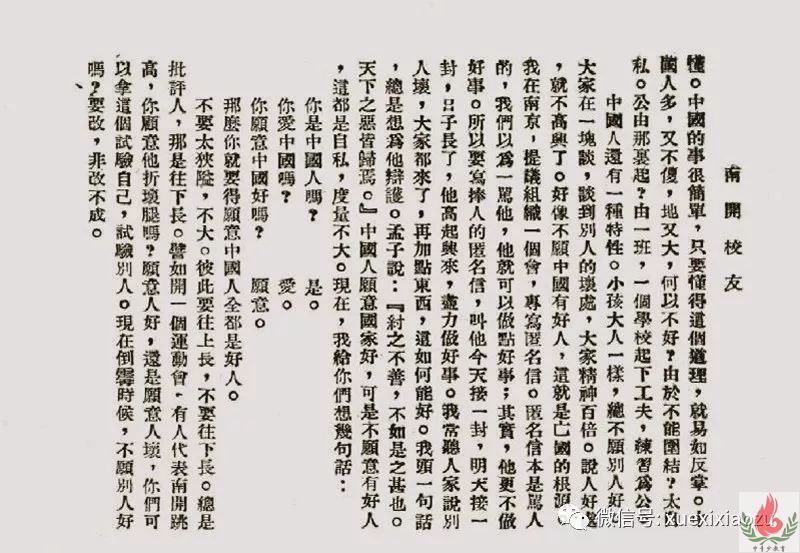 南開校友
懂。中國的事很簡單，只要懂得這個道理，就易如反掌。
國人多，又不傻，地又大，何以不好？由於不能團結？太自
私。公由那裏起？由一班，一個學校起下工夫，練習爲公。
中國人還有一種特性。小孩大人一樣，總不願別人好。
大家在一塊談，談到別人的壞處，大家精神百倍。說人好處
，就不高興了。好像不願中國有好人，這就是亡國的根源。
我在南京，提議組織一個會，專寫匿名信。匿名信本是罵人
的，我們以爲一罵他，他就可以做點好事；其實，他更不做
好事。所以要寫捧人的匿名信，叫他今天接一封，明天接一
封，日子長了，他高起興來，盡力做好事。我常聽人家說別
人壞，大家都來了，再加點東西，這如何能好。我頭一句話
，總是想爲他辯護。孟子說：『紂之不善，不如是之甚也。
天下之惡皆歸焉。』中國人願意國家好，可是不願意有好人
，這都是自私，度量不大。現在，我給你們想幾句話：
你是中國人嗎？　是。
你愛中國嗎？　愛。
你願意中國好嗎？　願意。
那麼你就要得願意中國人全都是好人。
不要太狹隘，不大。彼此要往上長，不要往下長。總是
批評人，那是往下長。譬如開一個運動會，有人代表南開跳
高，你願意他折壞腿嗎？願意人好，還是願意人壞，你們可
以拿這個試驗自己，試驗別人。現在倒霉時候，不願別人好
嗎？要改，非改不成。
微信号: xuexixiaozu
中青少教育